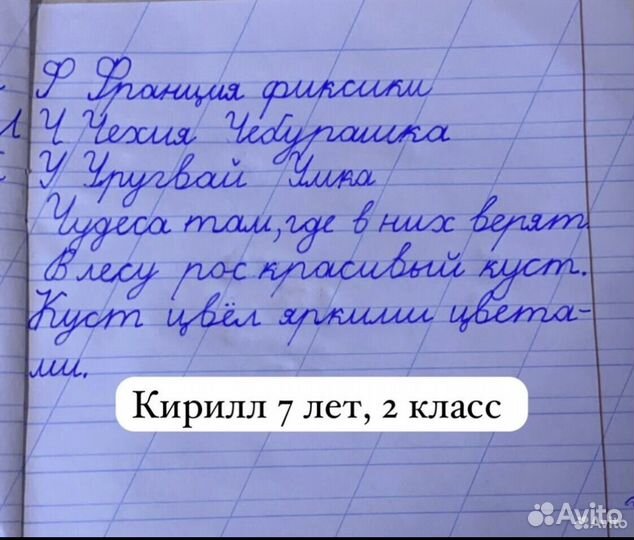 Ф Франция фиксики
Ч Чехия Чебурашка
У Уругвай Умка
Чудеса там, где в них верят.
В лесу рос красивый куст.
Куст цвёл яркими цвета-
ми.
Кирилл 7 лет, 2 класс
Avito
Avito